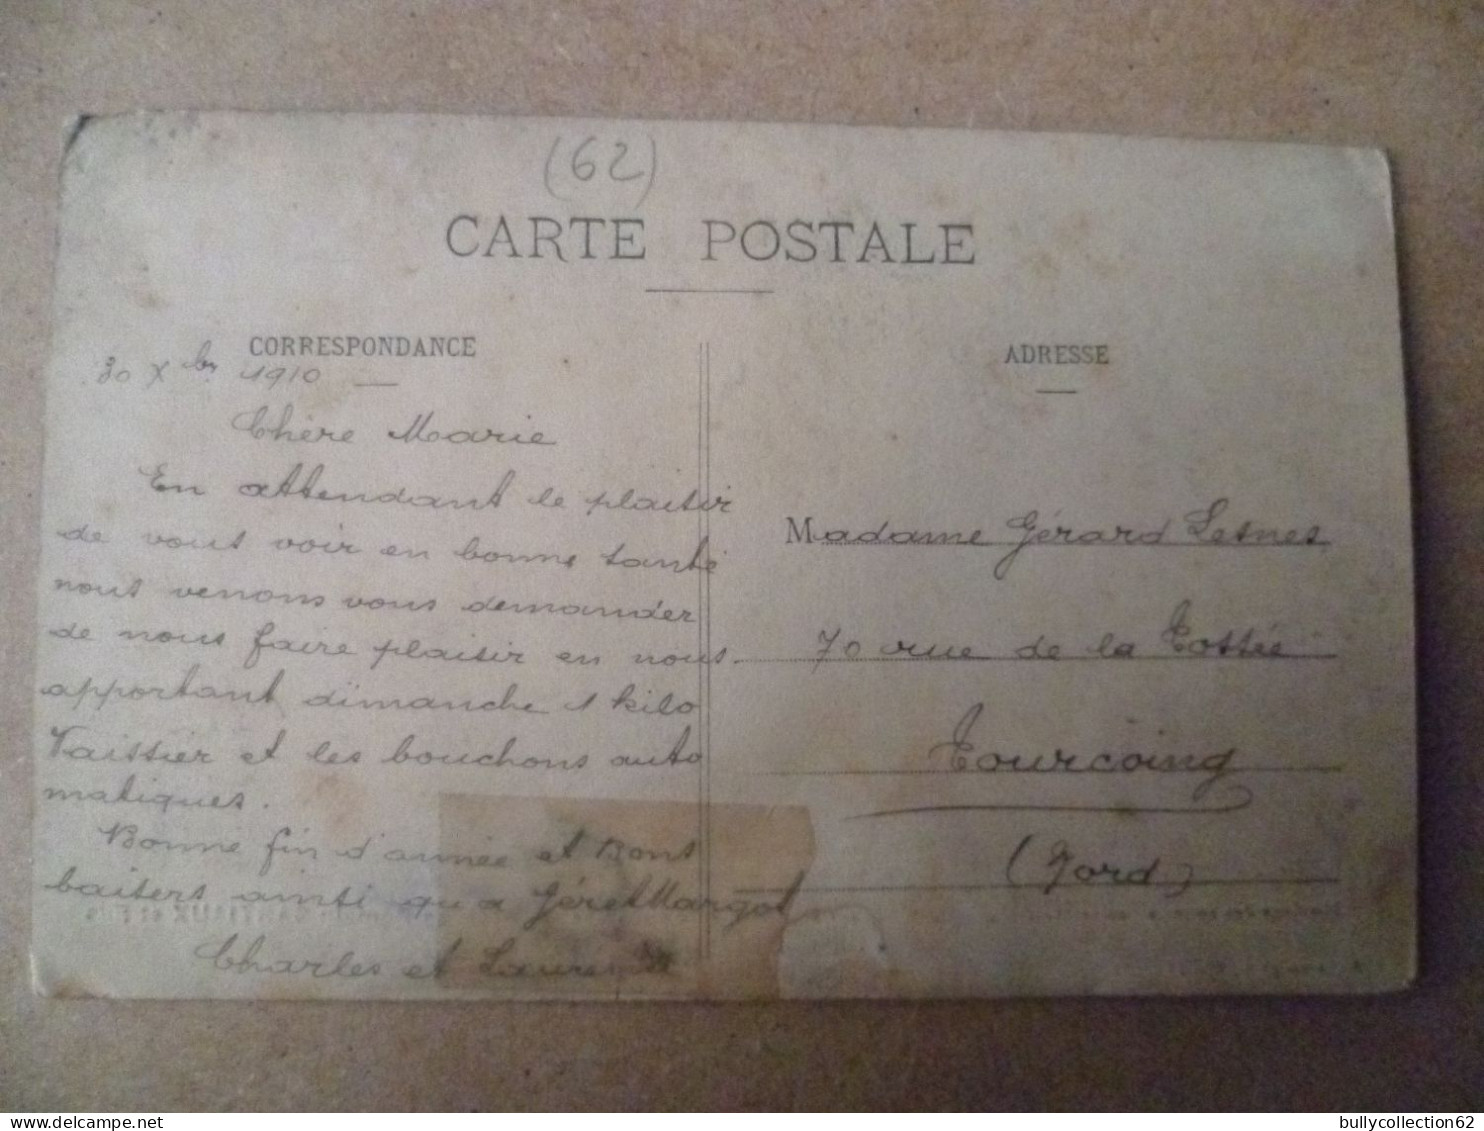 (62)
CARTE POSTALE
CORRESPONDANCE
30 Xbr 1910
Chère Marie
En attendant le plaisir
de vous voir en bonne santé
nous venons vous demander
de nous faire plaisir en nous
apportant dimanche 1 kilo
Vaissier et les bouchons auto
matiques.
Bonne fin d'année et Bons
baisers ainsi qu'a Gér et Margot
Charles et
ADRESSE
Madame Gérard Lesnes
70 rue de la
Tourcoing
(Nord)
bullycollection62